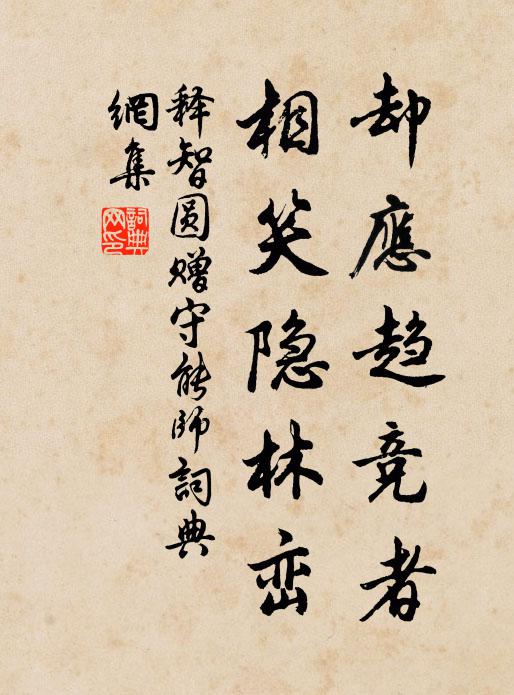 却應趋竞者
相笑隐林峦
释智圆赠守能师詞典
網集
詞典
网印